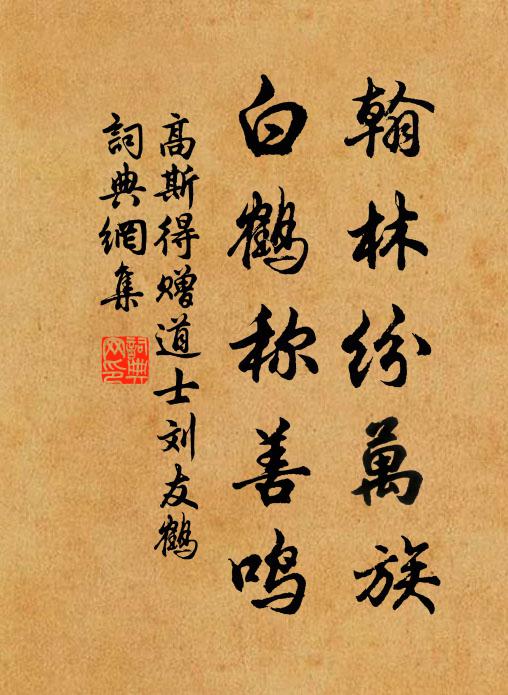 翰林纷萬族
白鹤称善鸣
高斯得赠道士刘友鹤
詞典網集
詞典網印